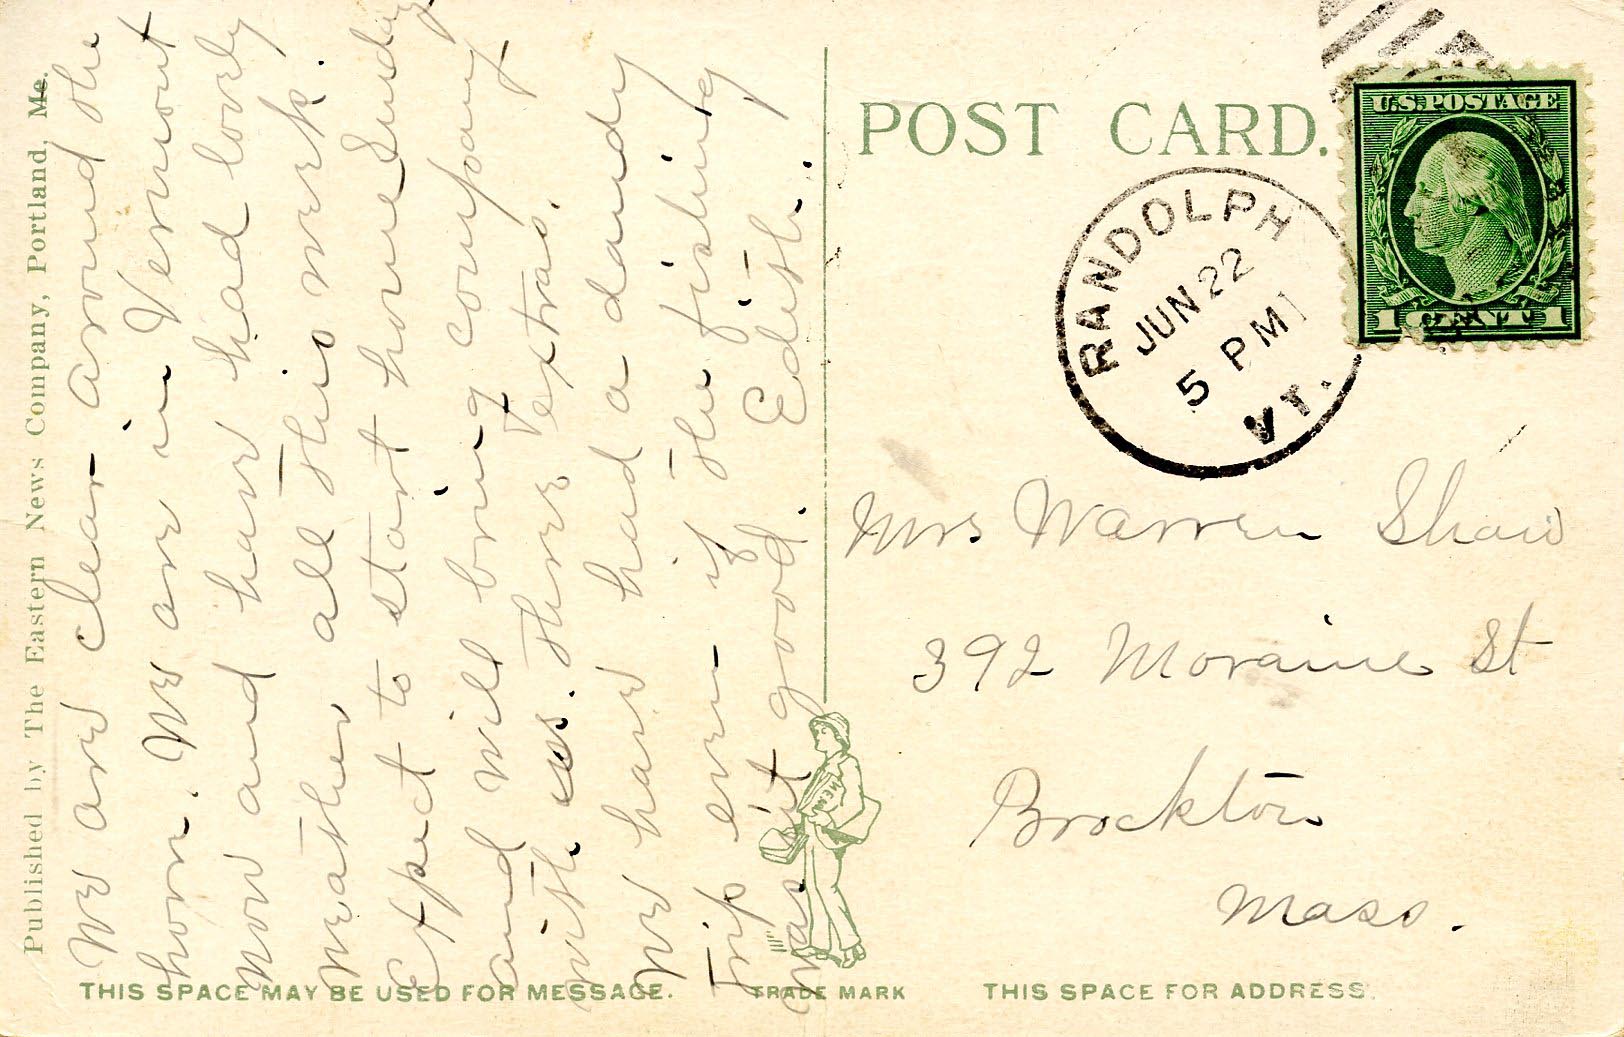 Published by The Eastern News Company, Portland, Me.
We are clear around the
horn. We are in Vermont
now and have had lovely
weather all this week.
Expect to start home Sunday
and will bring company
with us. three extras.
We have had a dandy
trip even if the fishing
was'it good. Edith.
THIS SPACE MAY BE USED FOR MESSAGE.
TRADE MARK
POST CARD.
RANDOLPH
JUN 22
5 PM
VT.
U.S. POSTAGE
1 CENT 1
Mrs Warren Shaw
392 Moraine St
Brockton
Mass.
THIS SPACE FOR ADDRESS.